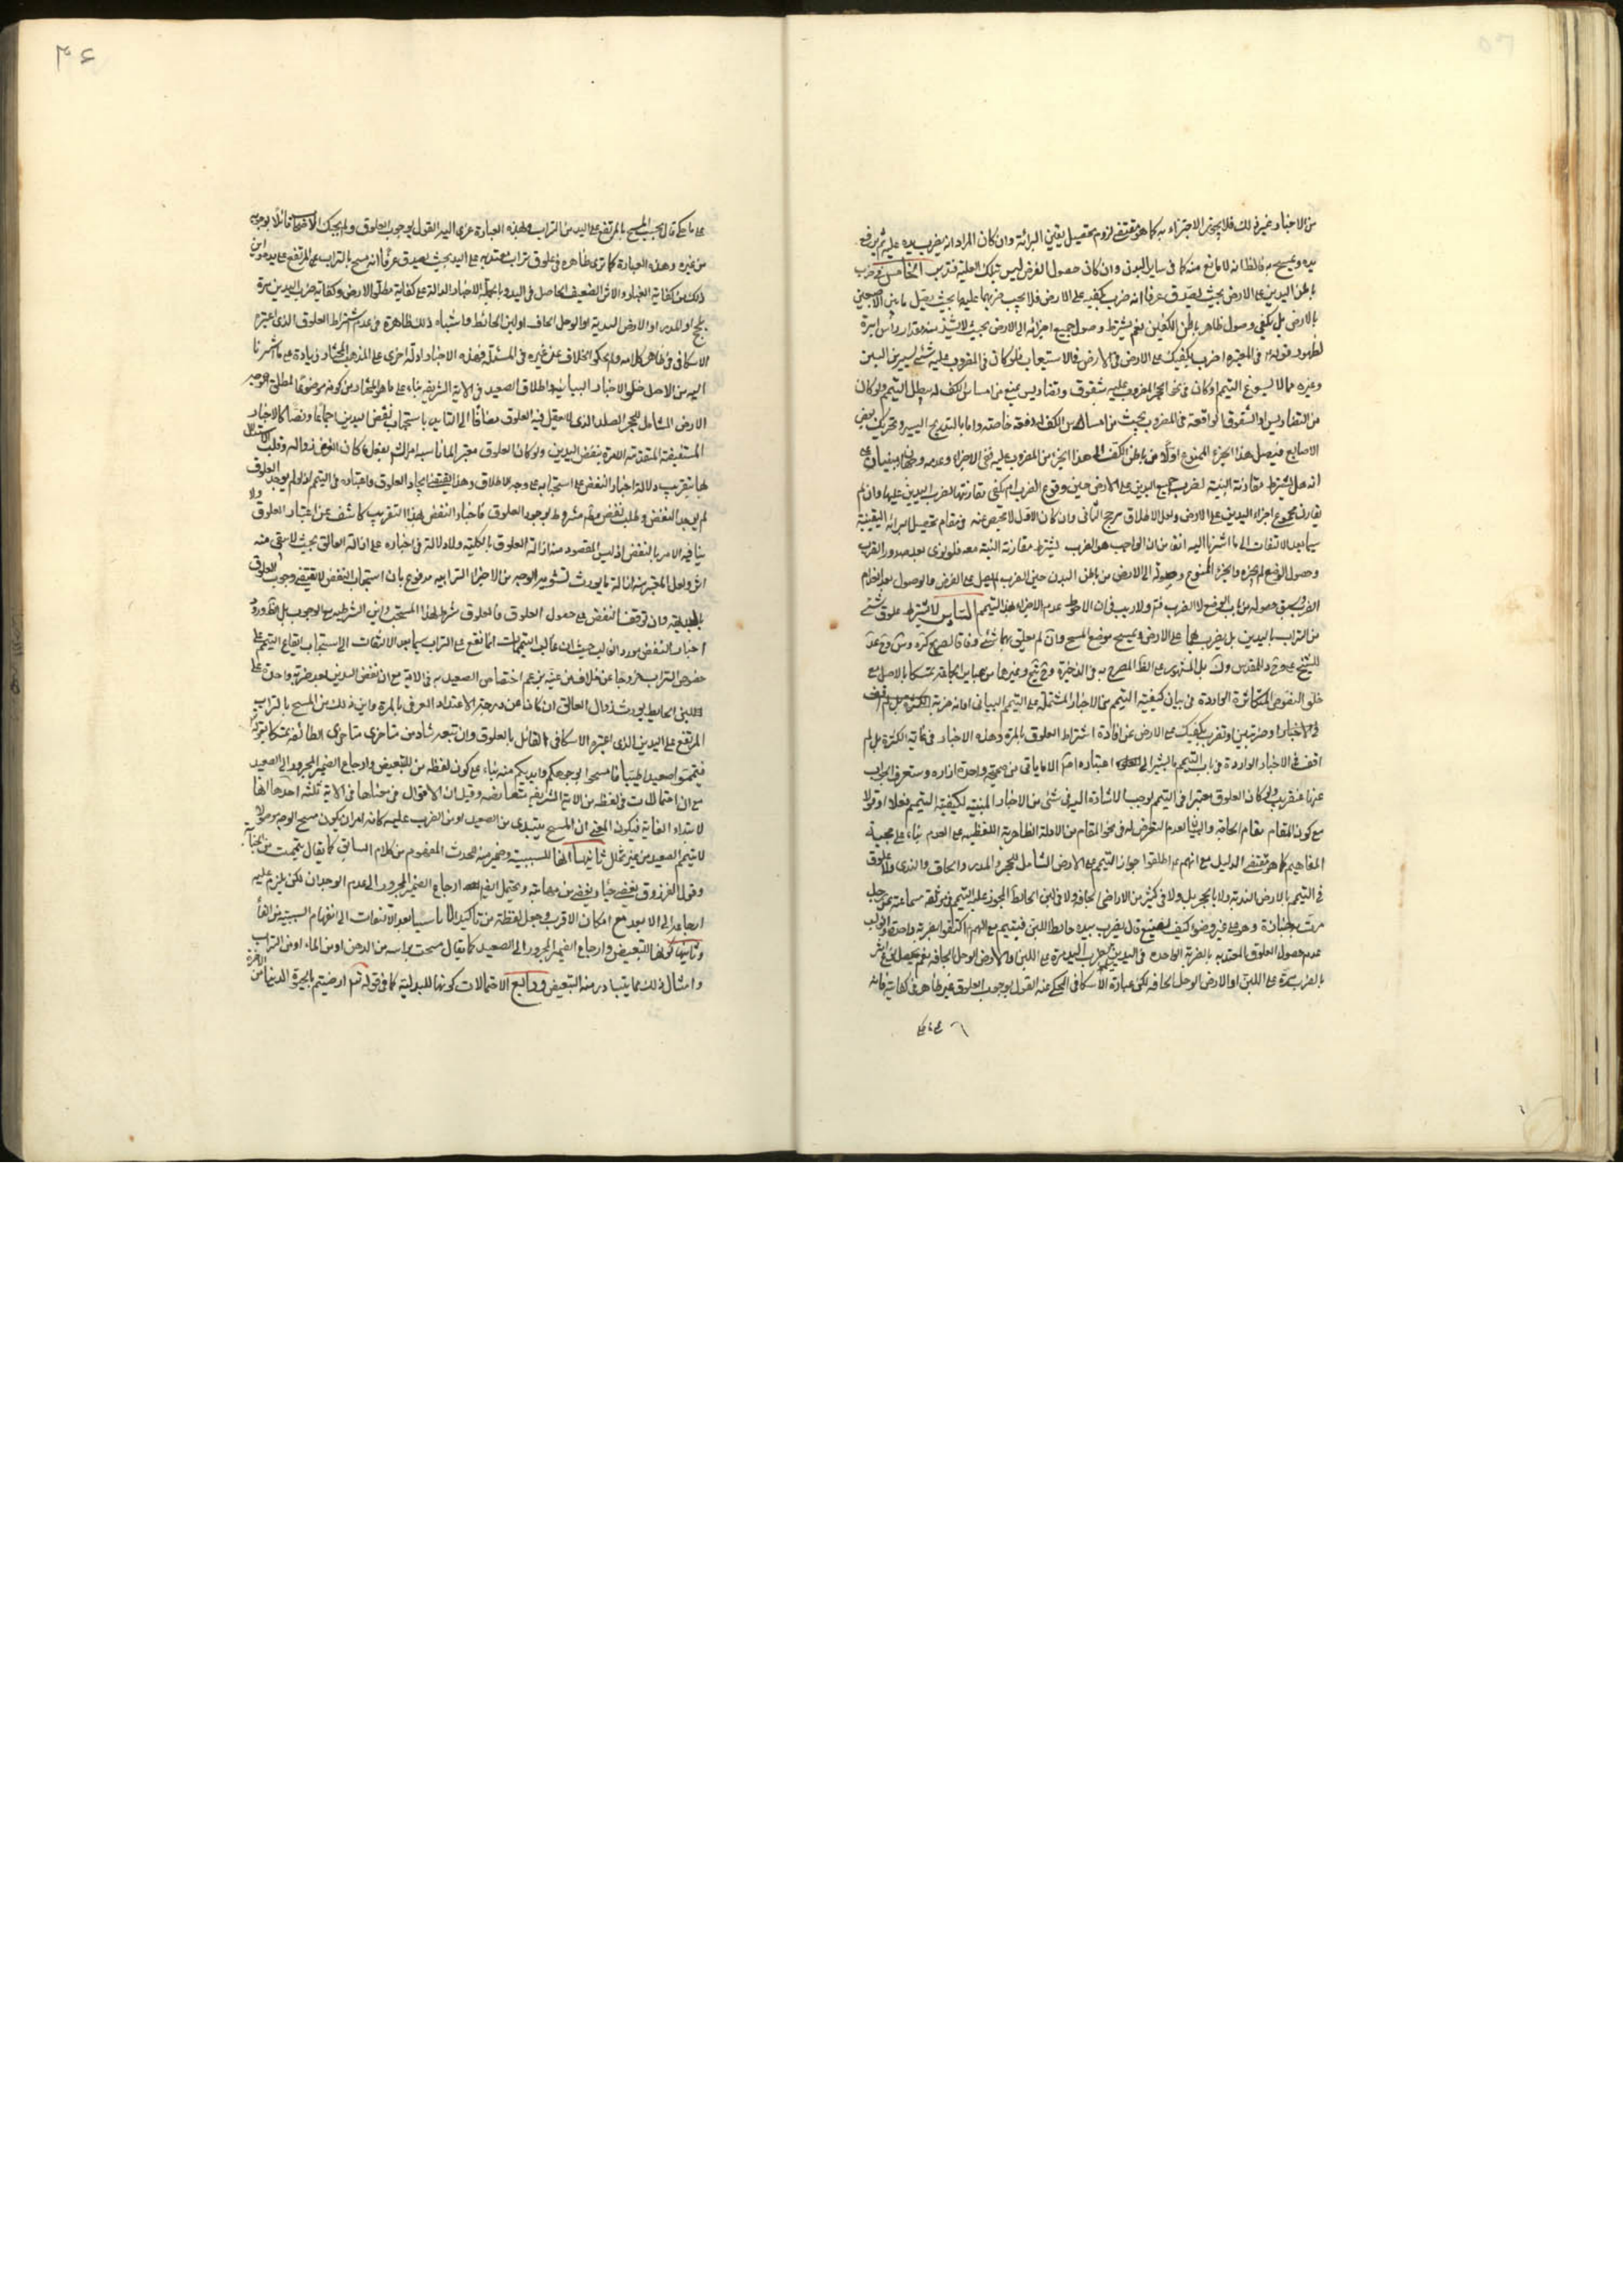 من الاخبار غير ذلك فلا يجوز الاجتزاء به كما هو مقتضى لزوم تحصيل يقين البرائة وان كان المراد انه يضرب يديه عليه ثم يرفع
يديه ويمسح به فالظ انه لا مانع منه كما في ساير البدن وان كان حصول الفرض ليس بتلك الغلبة فتدبر الخامس
باطن اليدين على الارض بحيث يصدق عرفا انه ضرب كفيه على الارض فلا يجب ضربهما عليها بحيث يصل ما بين الاصبعين
بالارض بل يكفي وصول ظاهر باطن الكفين نعم يشترط وصول جميع اجزائه الى الارض بحيث لا يشذ منه مقدار رأس ابرة
لظهور قوله في المعتبرة اضرب بكفيك على الارض في الاستيعاب فلو كان في المضروب عليه شئ يسير من التبن
وغيره مما لا يسوغ التيمم او كان في الحجر المضروب عليه شقوق وتضاريس يمنع من امساس الكف له يبطل التيمم ولو كان
من التضاريس او الشقوق الواقعة في المضروب بحيث من امساس الكف له دفعة خاصة واما بالتدريج اليسير وتحريك بعض
الاصابع فيتصل هذا الجزء الممنوع اولا من باطن الكف الى هذا الجزء من المضروب عليه ففي الاجزاء وعدمه وجهان مبنيان على
انه هل يشترط مقارنة النية لضرب جميع اليدين على الارض حين وقوع الضرب ام يكفي مقارنتها لضرب اليدين عليها وان لم
يقارن مجموع اجزاء اليدين على الارض ولعل الاطلاق مرجح الثاني وان كان الاول لا محيص عنه في مقام تحصيل البرائة اليقينية
سيما بعد الالتفات الى ما اشرنا اليه انفا من ان الواجب هو الضرب يشترط مقارنة النية معه فلو نوى بعد صدور الضرب
وحصول الوضع لم يجزه والجزء الممنوع وصوله الى الارض من باطن اليدين حين الضرب
الضرب يسبق حصوله من باب الوضع لا الضرب نعم ولا ريب في ان الاحوط عدم الاجزاء بهذا التيمم السادس لا يشترط علوق شئ
من التراب باليدين بل يضرب بهما على الارض ويمسح موضع المسح وان لم يعلق بهما شئ وفاقا لصريح كره
بل المشهور على الظ المصرح به في الذخيرة وغيرها من عباير الجماعة تمسكا بالاصل مع
خلو النصوص المتكاثرة الواردة في بيان كيفية التيمم من الاخبار المشتملة على التيمم البياني
الاخبار او ضربتين او تضرب بكفيك على الارض عن افادة اشتراط العلوق بالمرة وهذه الاخبار في غاية الكثرة بل لم
اقف في الاخبار الواردة في باب التيمم ما يشير الى اعتباره اصلا الا ما ياتي من صحيحة واحدة لزراره وستعرف الجواب
عنها عنقريب ولو كان العلوق معتبرا في التيمم لوجب الاشارة اليه في شئ من الاخبار المبينة لكيفية التيمم فعلا او قولا
مع كون المقام مقام الحاجة وايضا لعدم التعرض له في نحو المقام من الادلة الظاهرية اللفظية على العدم بناء على حجية
المفاهيم كما هو مقتضى الدليل مع انهم اطلقوا جواز التيمم على الارض الشامل للحجر والمدر والجاف والندى ولا علوق
في التيمم بالارض الندية ولا بالحجر بل ولا في كثير من الاراضي الجافة ولا في لبن الحائط المجوز عليه التيمم في موثقة سماعة عن رجل
مرت به جنازة وهو على غير وضوء كيف يصنع قال يضرب بيديه حائط اللبن فيتيمم
عدم حصول العلوق المعتد به بالضربة الواحدة في اليدين
بالضرب مرة على اللبن او الارض الوحل الجافة لكن عبارة الاسكافي المحكي عنه القول بوجوب العلوق غير ظاهر في كفايته فانه
على ما حكي
۴۶
على ما حكي قال يجب المسح بالمرتفع على اليد من التراب وبهذه العبارة عزى اليه القول بوجوب العلوق ولم يحك
من غيره وهذه العبارة كما ترى ظاهرة في علوق تراب معتد به على اليد بحيث يصدق عرفا انه مسح بالتراب المرتفع على يديه واين
ذلك من كفاية الغبار والاثر الضعيف الحاصل في اليد وبالجملة الاخبار الدالة على كفاية مطلق الارض وكفاية ضرب اليدين مرة
او المدر او الارض الندية او الوحل الجاف او لبن الحائط واشباه ذلك ظاهرة في عدم اشتراط العلوق الذي اعتبره
الاسكافي في ظاهر كلامه ولم يحكوا الخلاف عن غيره في المسئلة فهذه الاخبار ادلة اخرى على المذهب المختار زيادة على ما اشرنا
اليه من الاصل وخلو الاخبار البيانية واطلاق الصعيد في الاية الشريفة بناء على ما هو المختار من كونه موضوعا لمطلق وجه
الارض الشامل للحجر الصلد الذي لا يعقل فيه العلوق مضافا الى التاييد باستحباب نفض اليدين اجماعا ونصا كالاخبار
المستفيضة المتقدمة الامرة بنفض اليدين ولو كان العلوق معتبرا لما ناسبه
لها بتقريب دلالة اخبار النفض على استحبابه على وجه الاطلاق وهذا يقتضي ايجاد العلوق واعتباره في التيمم اذ لو لم يوجد العلوق
لم يوجد النفض وطلب نفض ما لم مشروط بوجود العلوق فاخبار النفض بهذا التقريب كاشف عن اعتبار العلوق ولا
ينافيه الامر بالنفض اذ ليس المقصود منه ازالة العلوق بالكلية ولا دلالة في اخباره على ازالة العالق بحيث لا يبقى منه
اثر ولعل المعتبر منه ازالة ما يورث تشويه الوجه من الاجزاء الترابية مدفوع بان استحباب النفض لا يقتضي وجوب العلوق
بالبديهة وان توقف النفض على حصول العلوق فالعلوق شرط لهذا المستحب واين الشرطية مع الوجوب بل الظ ورود
اخبار النفض مورد الغالب حيث ان غالب التيممات انما تقع على التراب سيما بعد الالتفات الى استحباب ايقاع التيمم على
خصوص التراب خروجا عن خلاف من عينه بزعم اختصاص الصعيد به في الاية مع ان نفض اليدين بعد ضربة واحدة على
لبن الحائط يورث زوال العالق ان كان عن درجة الاعتداد العرفي بالمرة واين ذلك من المسح بالتراب
المرتفع على اليدين الذي اعتبره الاسكافي القائل بالعلوق وان تبعه شاذ من متاخري متاخري الطائفة تمسكا بقوله تعالى
فتيمموا صعيدا طيبا فامسحوا بوجوهكم وايديكم منه بناء على كون لفظة من للتبعيض وارجاع الضمير المجرور الى الصعيد
مع ان احتمالات في لفظة من الاية الشريفة متعارضة وقيل ان الاقوال في معناها في الاية ثلثة احدها انها
لابتداء الغاية فيكون المعنى ان المسح يبتدئ من الصعيد او من الضرب عليه
لا يتيمم الصعيد من غير تخلل ثانيها انها للسببية وضمير منه للحدث المفهوم من كلام السابق كما يقال تيممت من الجنابة
وقول الفرزدق يغضي حياء ويغضى من مهابته ويحتمل ارجاع الضمير المجرور الى عدم الوجدان لكن يلزم عليه
ارجاعه الى الابعد مع امكان الاقرب وجعل لفظة من تاكيدا لا تاسيسا بعد الالتفات الى انفهام السببية من الفاء
وثالثها كونها للتبعيض وارجاع الضمير المجرور الى الصعيد كما يقال مسحت براسه من الدهن او من الماء او من التراب
وامثال ذلك مما يتبادر منه التبعيض ورابع الاحتمالات كونها للبدلية كما في قوله تعالى ارضيتم بالحيوة الدنيا من الاخرة